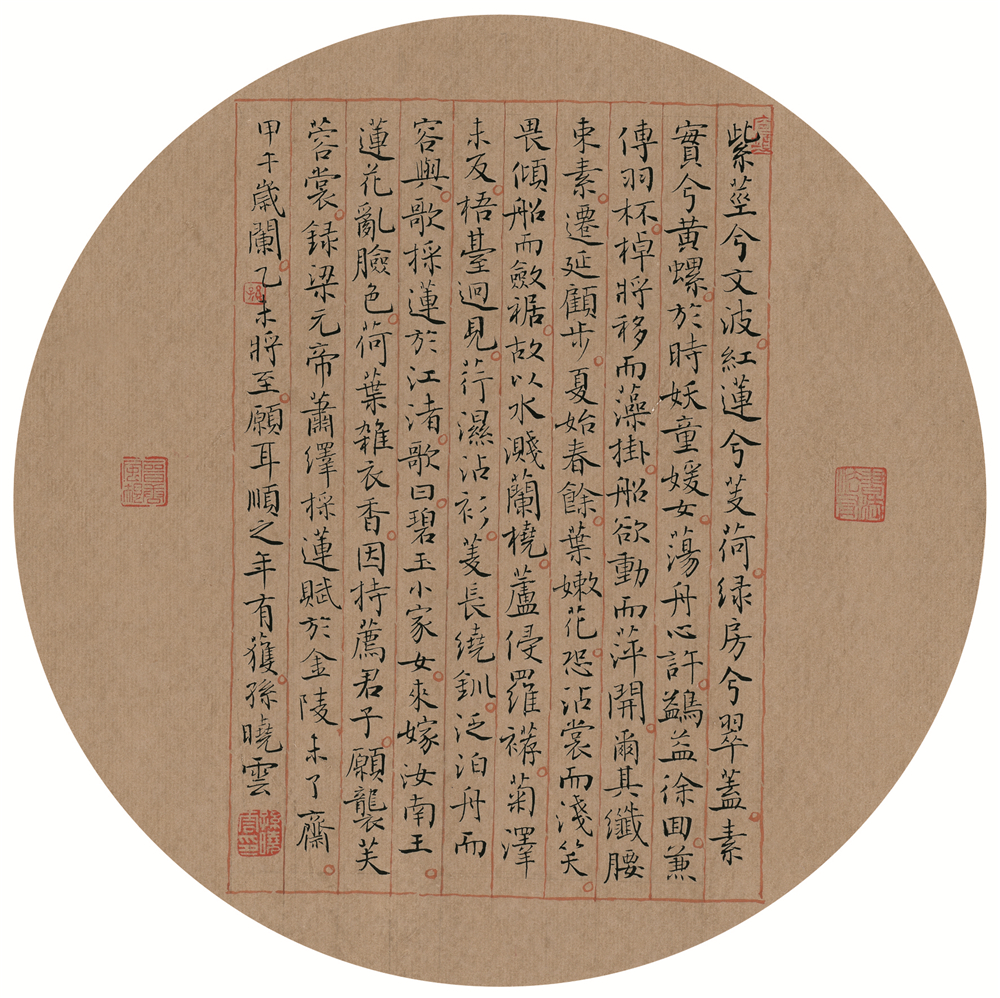 紫莖兮文波紅蓮兮芰荷绿房兮翠蓋素
實兮黄螺於時妖童媛女蕩舟心許鷁益徐回兼
傳羽杯棹將移而藻掛船欲動而萍開爾其纖腰
束素遷延顧步夏始春餘葉嫩花恐沾裳而淺笑
畏傾船而斂裾故以水濺蘭橈蘆侵羅𧝓菊澤
未反梧臺迥見荇濕沾衫菱長繞釧泛泊舟而
容與歌採蓮於江渚歌曰碧玉小家女來嫁汝南王
蓮花亂臉色荷葉雜衣香因持薦君子願襲芙
蓉裳録梁元帝蕭繹採蓮賦於金陵未了齋
甲午歲闌乙未將至願耳順之年有獲孫曉雲